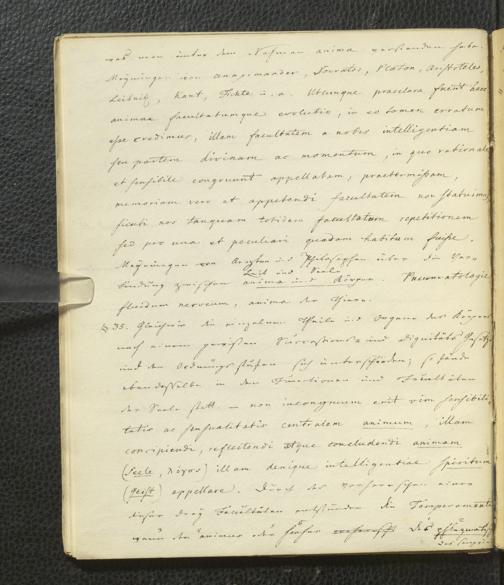 was man unter dem Nahmen anima verstanden habe.
Meynungen von Anaximander, Socrates, Platon, Aristoteles,
Leibnitz, Kant, Fichte u. a. Utcunque praeclara fuerit haec
animae facultatumque evolutio, in eo tamen erratum
esse credimus, illam facultatem a nobis intelligentiam
seu partem divinam ac momentum, in quo rationale
et sensibile congruunt appellatam, praetermissam,
memoriam vero et appetendi facultatem non statuimus
sicuti nos tanquam totidem facultatum repetitionem
sed pro una et peculiari quadam habitum fuisse.
Meynungen von Ärzten und Philosophen über die Ver-
Leib und Seele
bindung zwischen anima und Körper. Pneumatologie
fluidum nerveum, anima der Thiere.
§ 35. Gleichwie die einzelnen Theile und Organe des Körpers
nach einem gewissen und Dignitäts
und den Ordnungsstufen sich unterscheiden; so findet
ebendasselbe in den Functionen und Facultäten
der Seele statt. – non incongruum erit vim sensibili-
tatis ac sensualitatis centralem animum, illam
concipiendi, reflectendi atque concludendi animam
(Seele, λόγος) illam denique intelligentiae spiritum
(Geist) appellare. Durch das Vorherrschen einer
dieser drey Facultäten entstünden die Temperamente
wann der animus oder